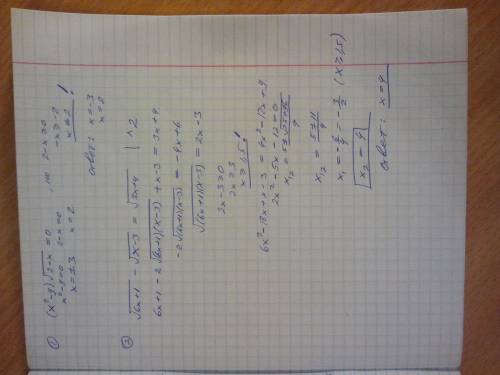 ① (x²-9)√2-x = 0
x²-9=0 2-x=0 , но 2-x≥0
x=±3 x=2 -x≥-2
x≤2 !
ответ: x=-3
x=2
② √6x+1 - √x-3 = √3x+4 | ^2
6x+1 - 2√(6x+1)(x-3) + x-3 = 3x+4
-2√(6x+1)(x-3) = -4x+6
√(6x+1)(x-3) = 2x-3
2x-3≥0
2x≥3
x≥1,5 !
6x²-17x+x-3 = 4x²-12x+9
2x²-5x-12=0
x₁₂ = 5±√25+96 / 4
x₁₂ = 5±11 / 4
x₁ = -6/4 = -3/2 (x≥1,5)
x₂ = 4
ответ: x=4